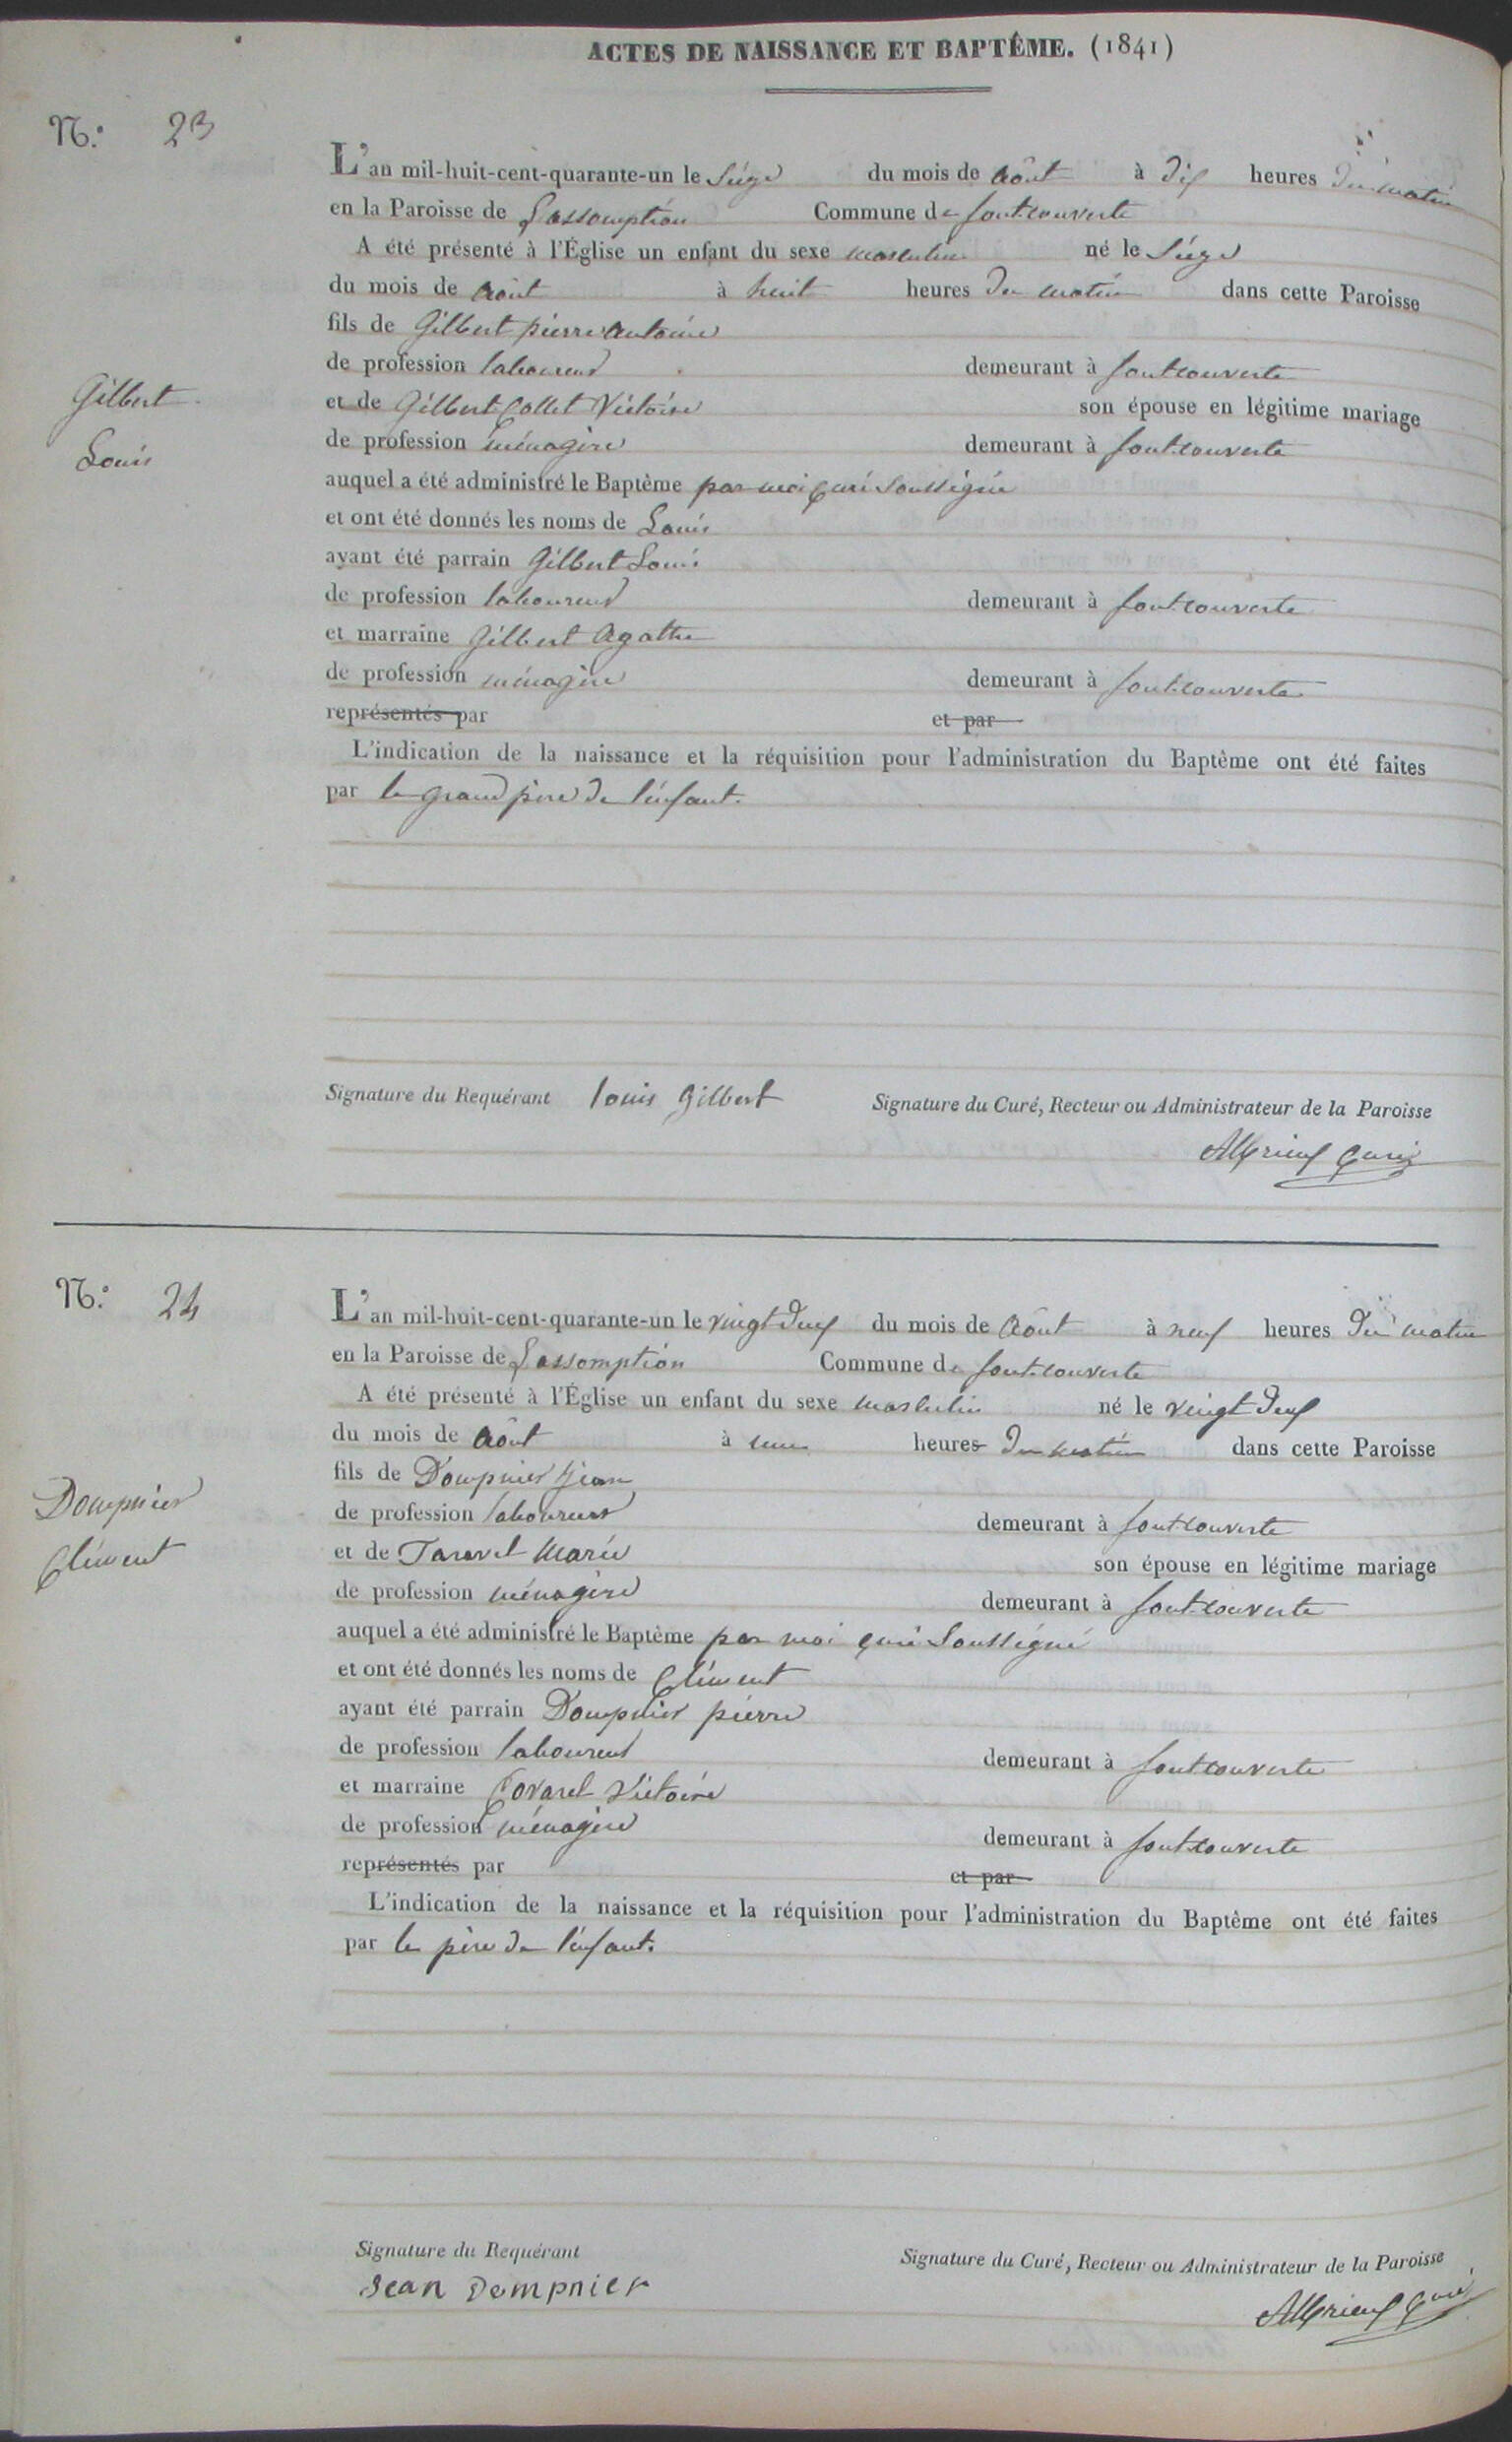 ACTES DE NAISSANCE ET BAPTÊME. (1841)
N.° 23
L'an mil-huit-cent-quarante-un le Siége du mois de Août à dix heures du matin
en la Paroisse de Lassomption Commune de fontcouverte
A été présenté à l'Église un enfant du sexe masculin né le Siége
du mois de Août à huit heures du matin dans cette Paroisse
fils de Gilbert pierre Antoine
de profession laboureur demeurant à fontcouverte
Gilbert
et de Gilbert Collet Victoire son épouse en légitime mariage
Louis
de profession ménagère demeurant à fontcouverte
auquel a été administré le Baptème par moi Curé Soussigné
et ont été donnés les noms de Louis
ayant été parrain Gilbert Louis
de profession laboureur demeurant à fontcouverte
et marraine Gilbert Agathe
de profession ménagère demeurant à fontcouverte
représentés par et par
L'indication de la naissance et la réquisition pour l'administration du Baptème ont été faites
par le grand père de l'enfant.
Signature du Requérant louis gilbert Signature du Curé, Recteur ou Administrateur de la Paroisse
Curé
N.° 24
L'an mil-huit-cent-quarante-un le vingt deux du mois de Août à neuf heures du matin
en la Paroisse de Lassomption Commune de fontcouverte
A été présenté à l'Église un enfant du sexe masculin né le vingt deux
du mois de Août à une heures du matin dans cette Paroisse
fils de Dompnier Jean
de profession laboureur demeurant à fontcouverte
Dompnier
et de Taravel Marie son épouse en légitime mariage
Clément
de profession ménagère demeurant à fontcouverte
auquel a été administré le Baptème par moi curé Soussigné
et ont été donnés les noms de Clément
ayant été parrain Dompnier pierre
de profession laboureur demeurant à fontcouverte
et marraine Covarel Victoire
de profession ménagère demeurant à fontcouverte
représentés par et par
L'indication de la naissance et la réquisition pour l'administration du Baptême ont été faites
par le père de l'enfant.
Signature du Requérant Signature du Curé, Recteur ou Administrateur de la Paroisse
Jean Dompnier
Curé